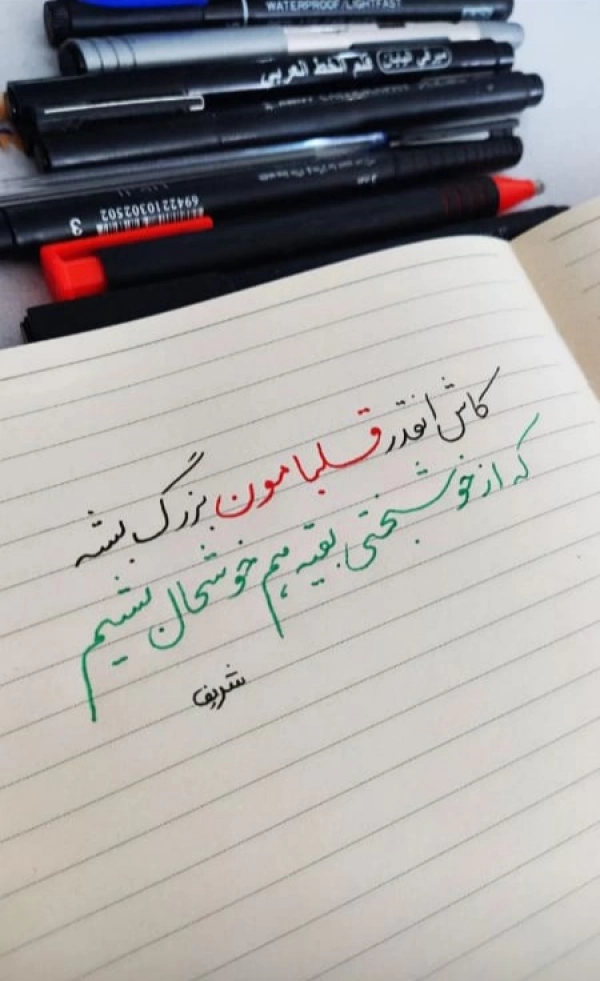 WATERPROOF/LIGHTFAST
قلم الخط العربي
6942210302502
3
کاش انقدر قلبامون بزرگ بشه
که از خوشبختی بقیه هم خوشحال بشیم
شریف